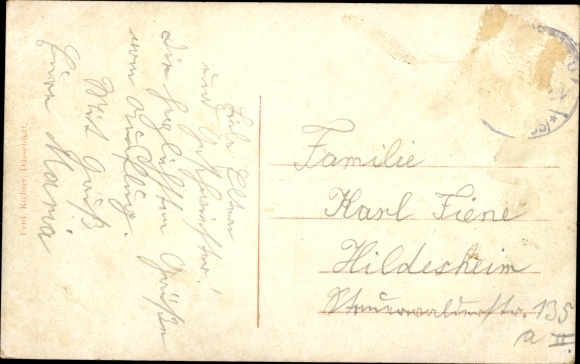 Liebe Eltern
und Geschwister!
Die herzlichsten Grüße
vom Ausflug.
Mit Gruß
Eure Maria
Familie
Karl Fiene
Hildesheim
Steuerwalderstr. 135
a II.
Ferd. Richter, Düsseldorf.